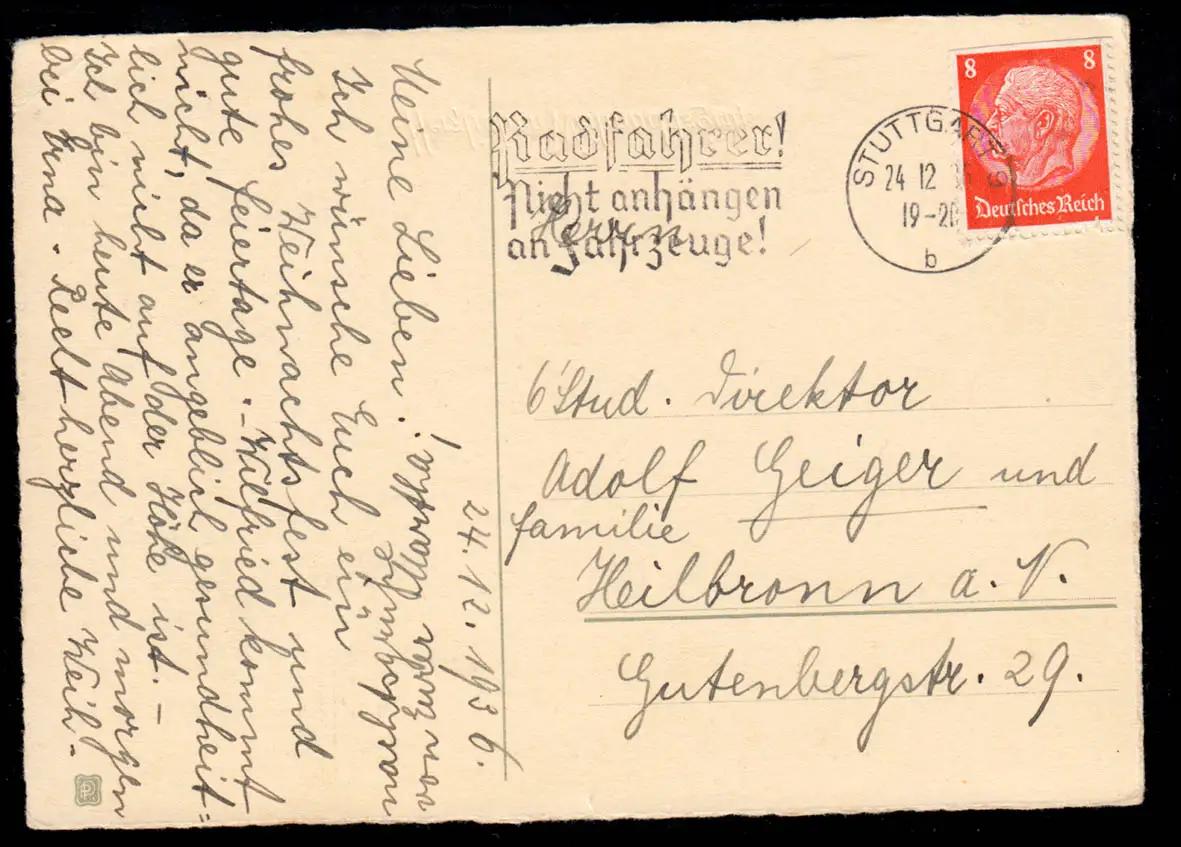 24.12.1936.
Meine Lieben!
Ich wünsche Euch ein
frohes Weihnachtsfest und
gute Feiertage. – Wilfried kommt
nicht, da er angeblich gesundheit=
lich nicht auf der Höhe ist. –
Ich bin heute Abend und morgen
bei Erna. Recht herzliche Weih-
nachtsgrüße
von Martha!
Radfahrer!
Nicht anhängen
an Fahrzeuge!
STUTTGART 9
24 12 36
19-20
b
8 8
Deutsches Reich
Herrn
Stud. Direktor
Adolf Geiger und
Familie
Heilbronn a. N.
Gutenbergstr. 29.